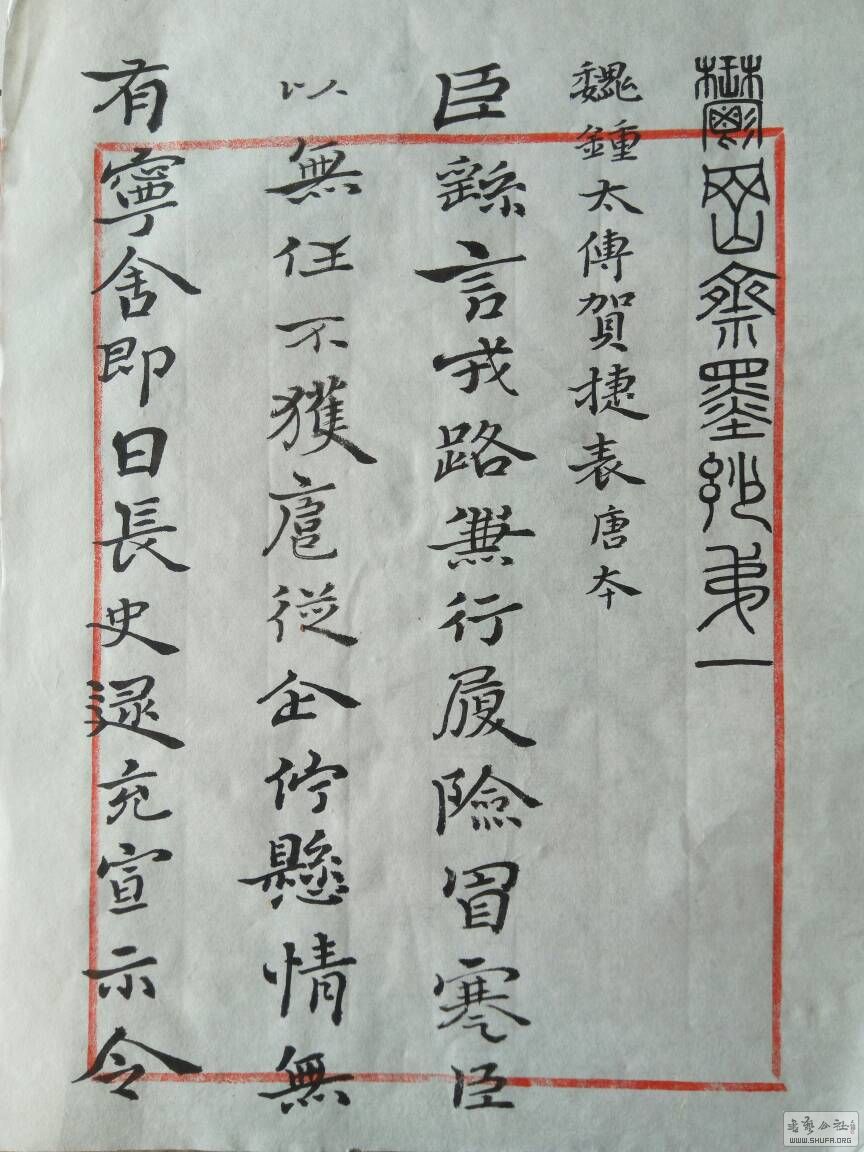 鬱岡齋墨妙弟一
魏鍾太傅賀捷表唐本
臣繇言戎路兼行履險冒寒臣
以無任不獲扈從企佇懸情無
有寧舍即日長史逯充宣示令
書藝公社
WWW.SHUFA.ORG